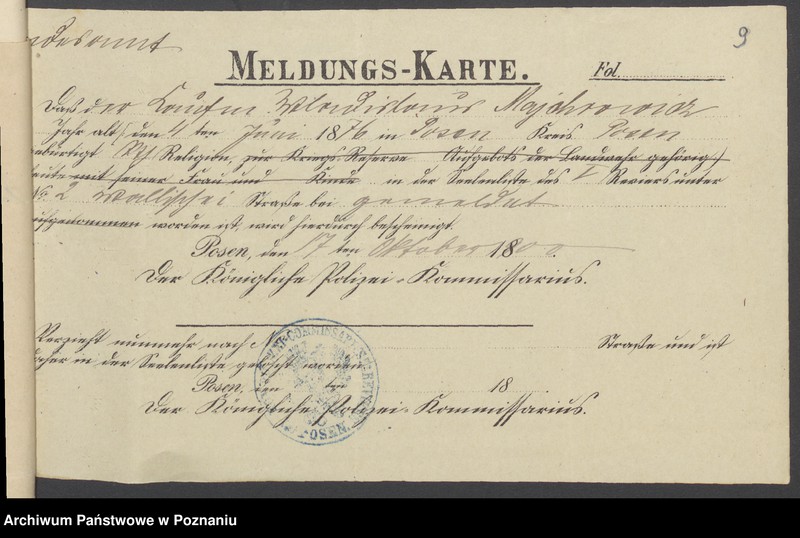 9
MELDUNGS-KARTE.
Fol.
Daß der Kaufm Wladislaus Majchrowicz
Jahr alt, den 4 ten Juni 1876 in Posen Kreis Posen
gebürtigt Religion, zur Kriegs-Reserve Aufgebots der Landwehr gehörig,
heute mit seiner Frau und Kinde in der Seelenliste des Reviers unter
No 2 Wallischei Straße bei gemeldet
aufgenommen worden ist, wird hierdurch bescheinigt.
Posen, den 17 ten Oktober 18
Der Königliche Polizei-Kommissarius.
Verzieht nunmehr nach Straße und ist
daher in der Seelenliste gelöscht worden
Posen, den ten 18
Der Königliche Polizei-Kommissarius.
POSEN
Archiwum Państwowe w Poznaniu